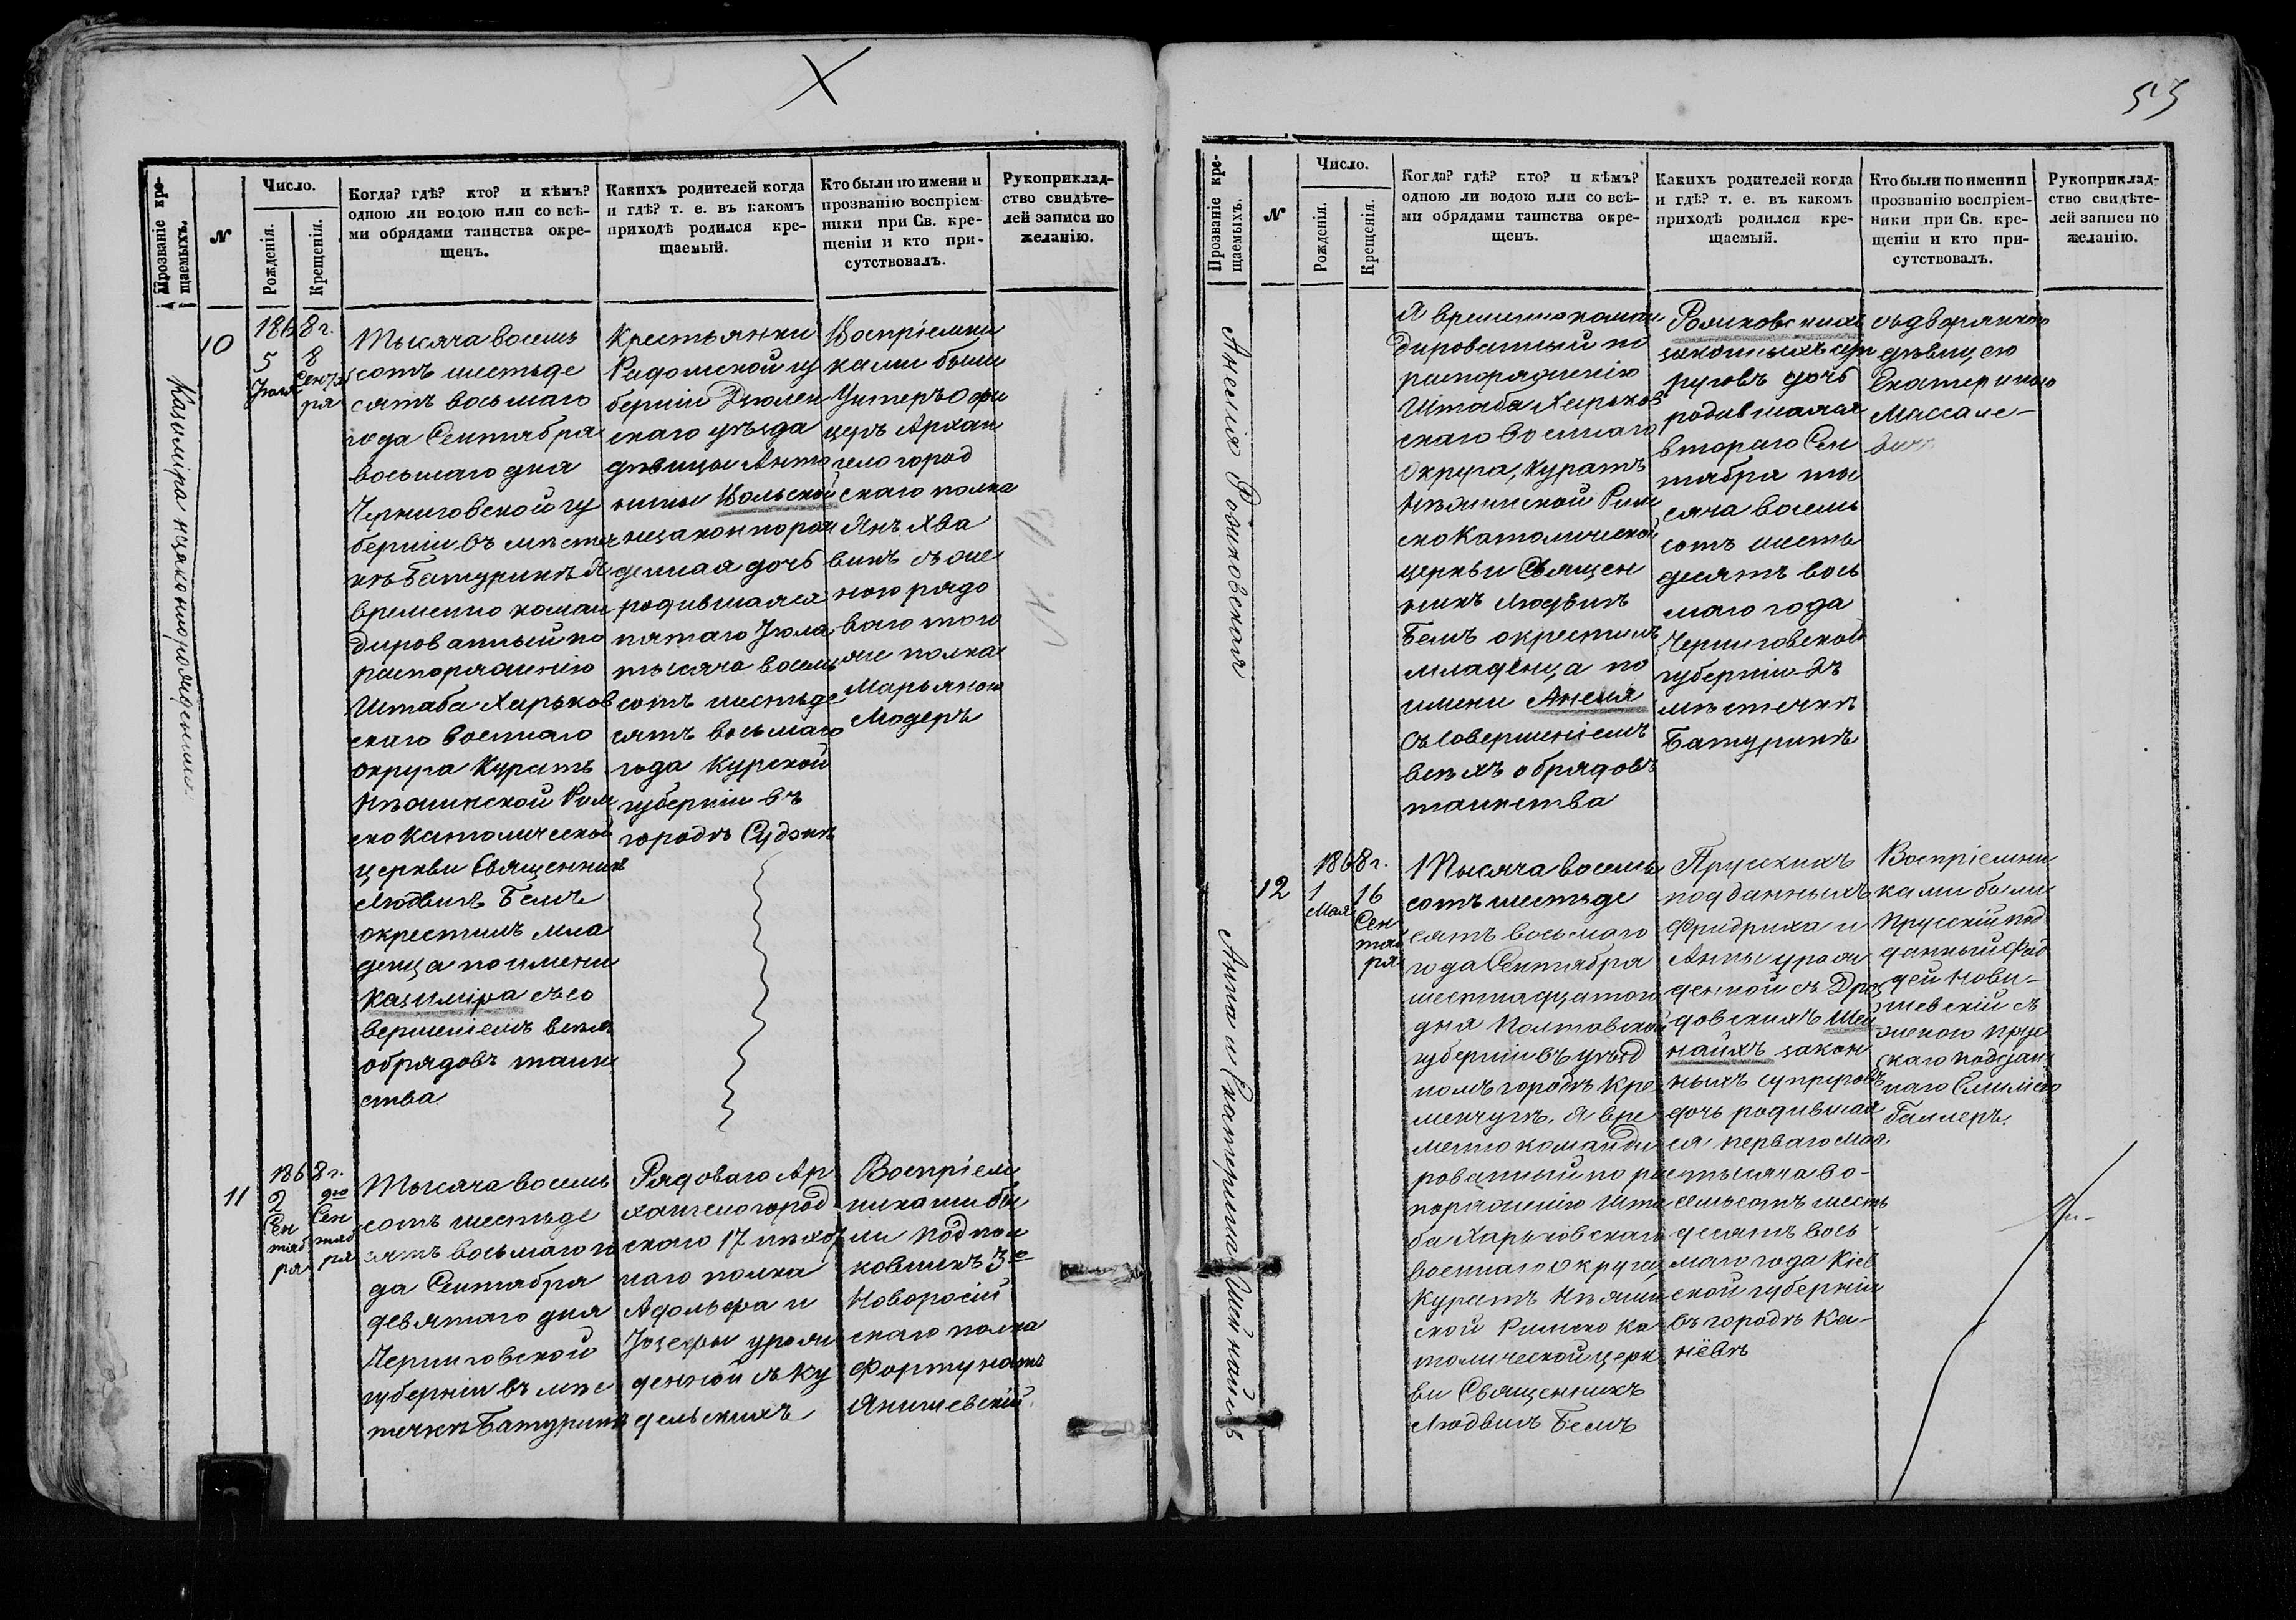 53
Прозваніе кре-
щаемыхъ.
N
Число.
Рожденія.
Крещенія.
Когда? гдѣ? кто? и кѣмъ?
одною ли водою или со всѣ-
ми обрядами таинства окре-
щенъ.
Какихъ родителей когда
и гдѣ? т. е. въ какомъ
приходѣ родился кре-
щаемый.
Кто были по имени и
прозванію воспріем-
ники при Св. кре-
щеніи и кто при-
сутствовалъ.
Рукоприклад-
ство свидѣте-
лей записи по
желанію.
Казиміра незаконнорожденная
10
1868 г.
5
Іюля
8
Сентя
ря
Тысяча восемь
сотъ шестьде
сятъ восьмаго
года Сентября
восьмаго дня
Черниговской гу
берніи въ мѣстеч
кѣ Батуринѣ Я
временно коман
дированный по
распоряженію
Штаба Харьков
скаго Военнаго
округа Куратъ
Нѣжинской Рим
ско Католической
церкви Священникъ
Людвигъ Бемъ
окрестилъ мла
денца по имени
Казиміра съ со
вершеніемъ всѣхъ
обрядовъ таин
ства
Крестьянки
Радомской гу
берніи
скаго уѣзда
дѣвицы Анто
нины Вольской
незаконнорож
денная дочь
родившаяся
пятаго Іюля
тысяча восемь
сотъ шестьде
сятъ восьмаго
года Курской
губерніи въ
городѣ Суджѣ
Воспріемни
ками были
Унтеръ Офи
церъ Архан
гелогород
скаго полка
Янъ
съ же
ною рядо
ваго того
же полка
Марьяною
Модеръ
11
1868 г.
2
Сен
тяб
ря
9го
Сен
тяб
ря
Тысяча восемь
сотъ шестьде
сятъ восьмаго го
да Сентября
девятаго дня
Черниговской
губерніи въ мѣс
течкѣ Батуринѣ
Рядоваго Ар
хангелогород
скаго 17 пѣхот
наго полка
Адольфа и
Іозефы урож
денной съ Ку
дельскихъ
Воспріем
никами бы
ли Подпол
ковникъ 3го
Новоросій
скаго полка
Фортунатъ
Янишевскій
Прозваніе кре-
щаемыхъ.
N
Число.
Рожденія.
Крещенія.
Когда? гдѣ? кто? и кѣмъ?
одною ли водою или со всѣ-
ми обрядами таинства окре-
щенъ.
Какихъ родителей когда
и гдѣ? т. е. въ какомъ
приходѣ родился кре-
щаемый.
Кто были по имени и
прозванію воспріем-
ники при Св. кре-
щеніи и кто при-
сутствовалъ.
Рукоприклад-
ство свидѣте-
лей записи по
желанію.
Анелія Роликовская
Я временно коман
дированный по
распоряженію
Штаба Харьков
скаго военнаго
Округа, Куратъ
Нѣжинской Рим
ско Католической
церкви Священ
никъ Людвигъ
Бемъ окрестилъ
младенца по
имени Анеля
съ совершеніемъ
всѣхъ обрядовъ
таинства
Роликовскихъ
законныхъ суп
руговъ дочь
родившаяся
втораго Сен
тября ты
сяча восемь
сотъ шесть
десятъ вось
маго года
Черниговской
губерніи въ
мѣстечкѣ
Батуринѣ
съ дворянкою
дѣвицею
Екатериною
Массале-
Анна и Екатерина Шейнайхъ
12
1868 г.
1
Мая
16
Сен
тяб
ря
Тысяча восемь
сотъ шестьде
сятъ восьмаго
года Сентября
шестнадцатого
дня Полтавской
губерніи въ уѣзд
номъ городѣ Кре
менчугѣ. Я вре
менно команди
рованный по рас
поряженію Шта
ба Харьковскаго
военнаго округа
Куратъ Нѣжин
ской Римско Ка
толической церк
ви Священникъ
Людвигъ Бемъ
Прусскихъ
подданныхъ
Фридриха и
Анны урож
денной съ Дроз
довскихъ Шей
найхъ закон
ныхъ супруговъ
дочь родившая
ся перваго Мая
тысяча во-
семьсотъ шесть
десятъ вось
маго года Кіев
ской губерніи
въ городѣ Ка-
нёвѣ
Воспріемни
ками были
Прусскій под
данный Фад
дей Нови-
шевскій съ
женою прус
скаго поддан
наго Емиліею
Галлеръ.